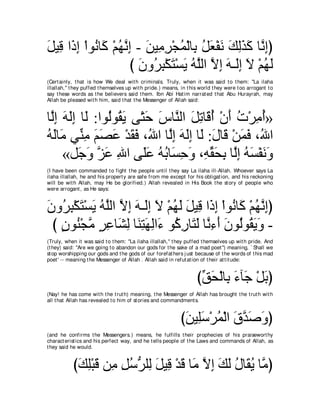 إِنَّا كَذَلِكَ نَفْعَلُ بِالْمُجْرِمِينَ - إِنَّهُمْ كَانُواْ إِذَا قِيلَ
لَهُمْ لاَ إِلَـهَ إِلاَّ اللَّهُ يَسْتَكْبِرُونَ )
(Certainly, that is how We deal with criminals. Truly, when it was said to them: "La ilaha
illallah," they puffed themselves up with pride.) means, in this world they were too arrogant to
say these words as the believers said them. Ibn Abi Hatim narrated that Abu Hurayrah, may
Allah be pleased with him, said that the Messenger of Allah said:
«أُمِرْتُ أَنْ أُقَاتِلَ النَّاسَ حَتَّى يَقُولُوا: لَا إِلهَ إِلَّا
اللهُ، فَمَنْ قَالَ: لَا إِلهَ إِلَّا اللهُ، فَقَدْ عَصَمَ مِنِّي مَالَهُ
وَنَفْسَهُ إِلَّا بِحَقِّهِ، وَحِسَابُهُ عَلَى اللهِ عَزَّ وَجَل»
(I have been commanded to fight the people until they say La ilaha ill-Allah. Whoever says La
ilaha illallah, he and his property are safe from me except for his obligation, and his reckoning
will be with Allah, may He be glorified.) Allah revealed in His Book the story of people who
were arrogant, as He says:
(إِنَّهُمْ كَانُواْ إِذَا قِيلَ لَهُمْ لاَ إِلَـهَ إِلاَّ اللَّهُ يَسْتَكْبِرُونَ
- وَيَقُولُونَ أَءِنَّا لَتَارِكُو ءَالِهَتِنَا لِشَاعِرٍ مَّجْنُونٍ )
(Truly, when it was said to them: "La ilaha illallah," they puffed themselves up with pride. And
(they) said: "Are we going to abandon our gods for the sake of a mad poet") meaning, `Shall we
stop worshipping our gods and the gods of our forefathers just because of the words of this mad
poet' -- meaning the Messenger of Allah . Allah said in refutation of their attitude:
(بَلْ جَآءَ بِالْحَقِّ)
(Nay! he has come with the truth) meaning, the Messenger of Allah has brought the truth with
all that Allah has revealed to him of stories and commandments.
(وَصَدَّقَ الْمُرْسَلِينَ)
(and he confirms the Messengers.) means, he fulfills their prophecies of his praiseworthy
characteristics and his perfect way, and he tells people of the Laws and commands of Allah, as
they said he would.
(مَّا يُقَالُ لَكَ إِلاَّ مَا قَدْ قِيلَ لِلرُّسُلِ مِن قَبْلِكَ)